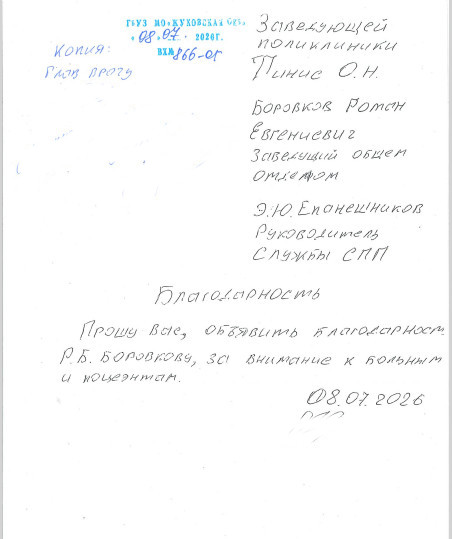 ГБУЗ МО «ЖУКОВСКАЯ
« 08 » 07 . 2020г.
ВХ№ 866-ог
КОПИЯ:
ГЛАВ ВРАЧУ
Заведующей
поликлиники
Пинис О.Н.
Боровков Роман
Евгениевич
Заведущий общем
отделом
Э.Ю.Епанешников
Руководитель
Службы СПП
Благодарность
Прошу Вас, объявить благодарност
Р.Б. Боровкову, за внимание к больным
и поцеэнтам.
08.07.2026